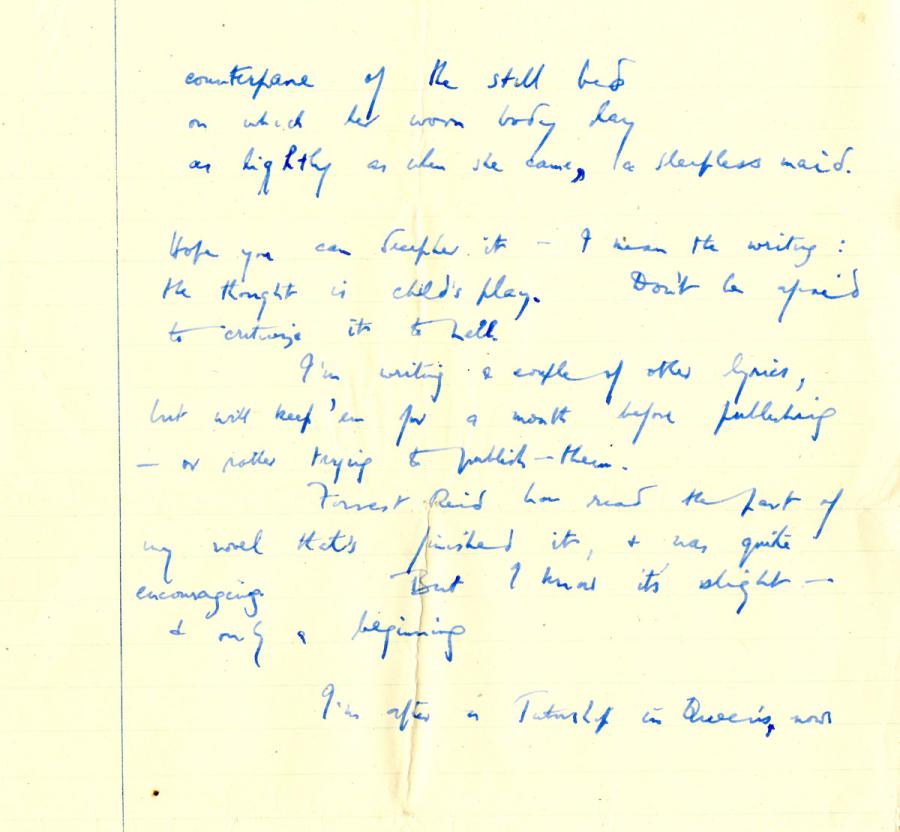 counterpane of the still bed
on which her worn body lay
as lightly as when she came, a sleepless maid.
Hope you can decipher it – I mean the writing :
the thought is child's play. Don't be afraid
to criticize it to hell.
I'm writing a couple of other lyrics,
but will keep 'em for a month before publishing
– or rather trying to publish – them.
Forrest Reid has read the part of
my novel that's finished it, & was quite
encouraging. But I know it's slight –
& only a beginning
I'm after a Tutorship in Queen's, now